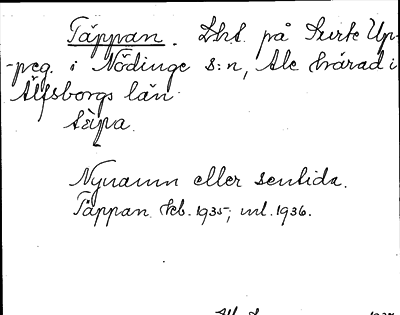 Täppan. Lht. på Surte Up-
-peg. i Nödinge s:n, Ale härad i
Älfsborgs län.
tɛ̀pa.
Nynamn eller sentida.
Täppan kb. 1935; ml. 1936.